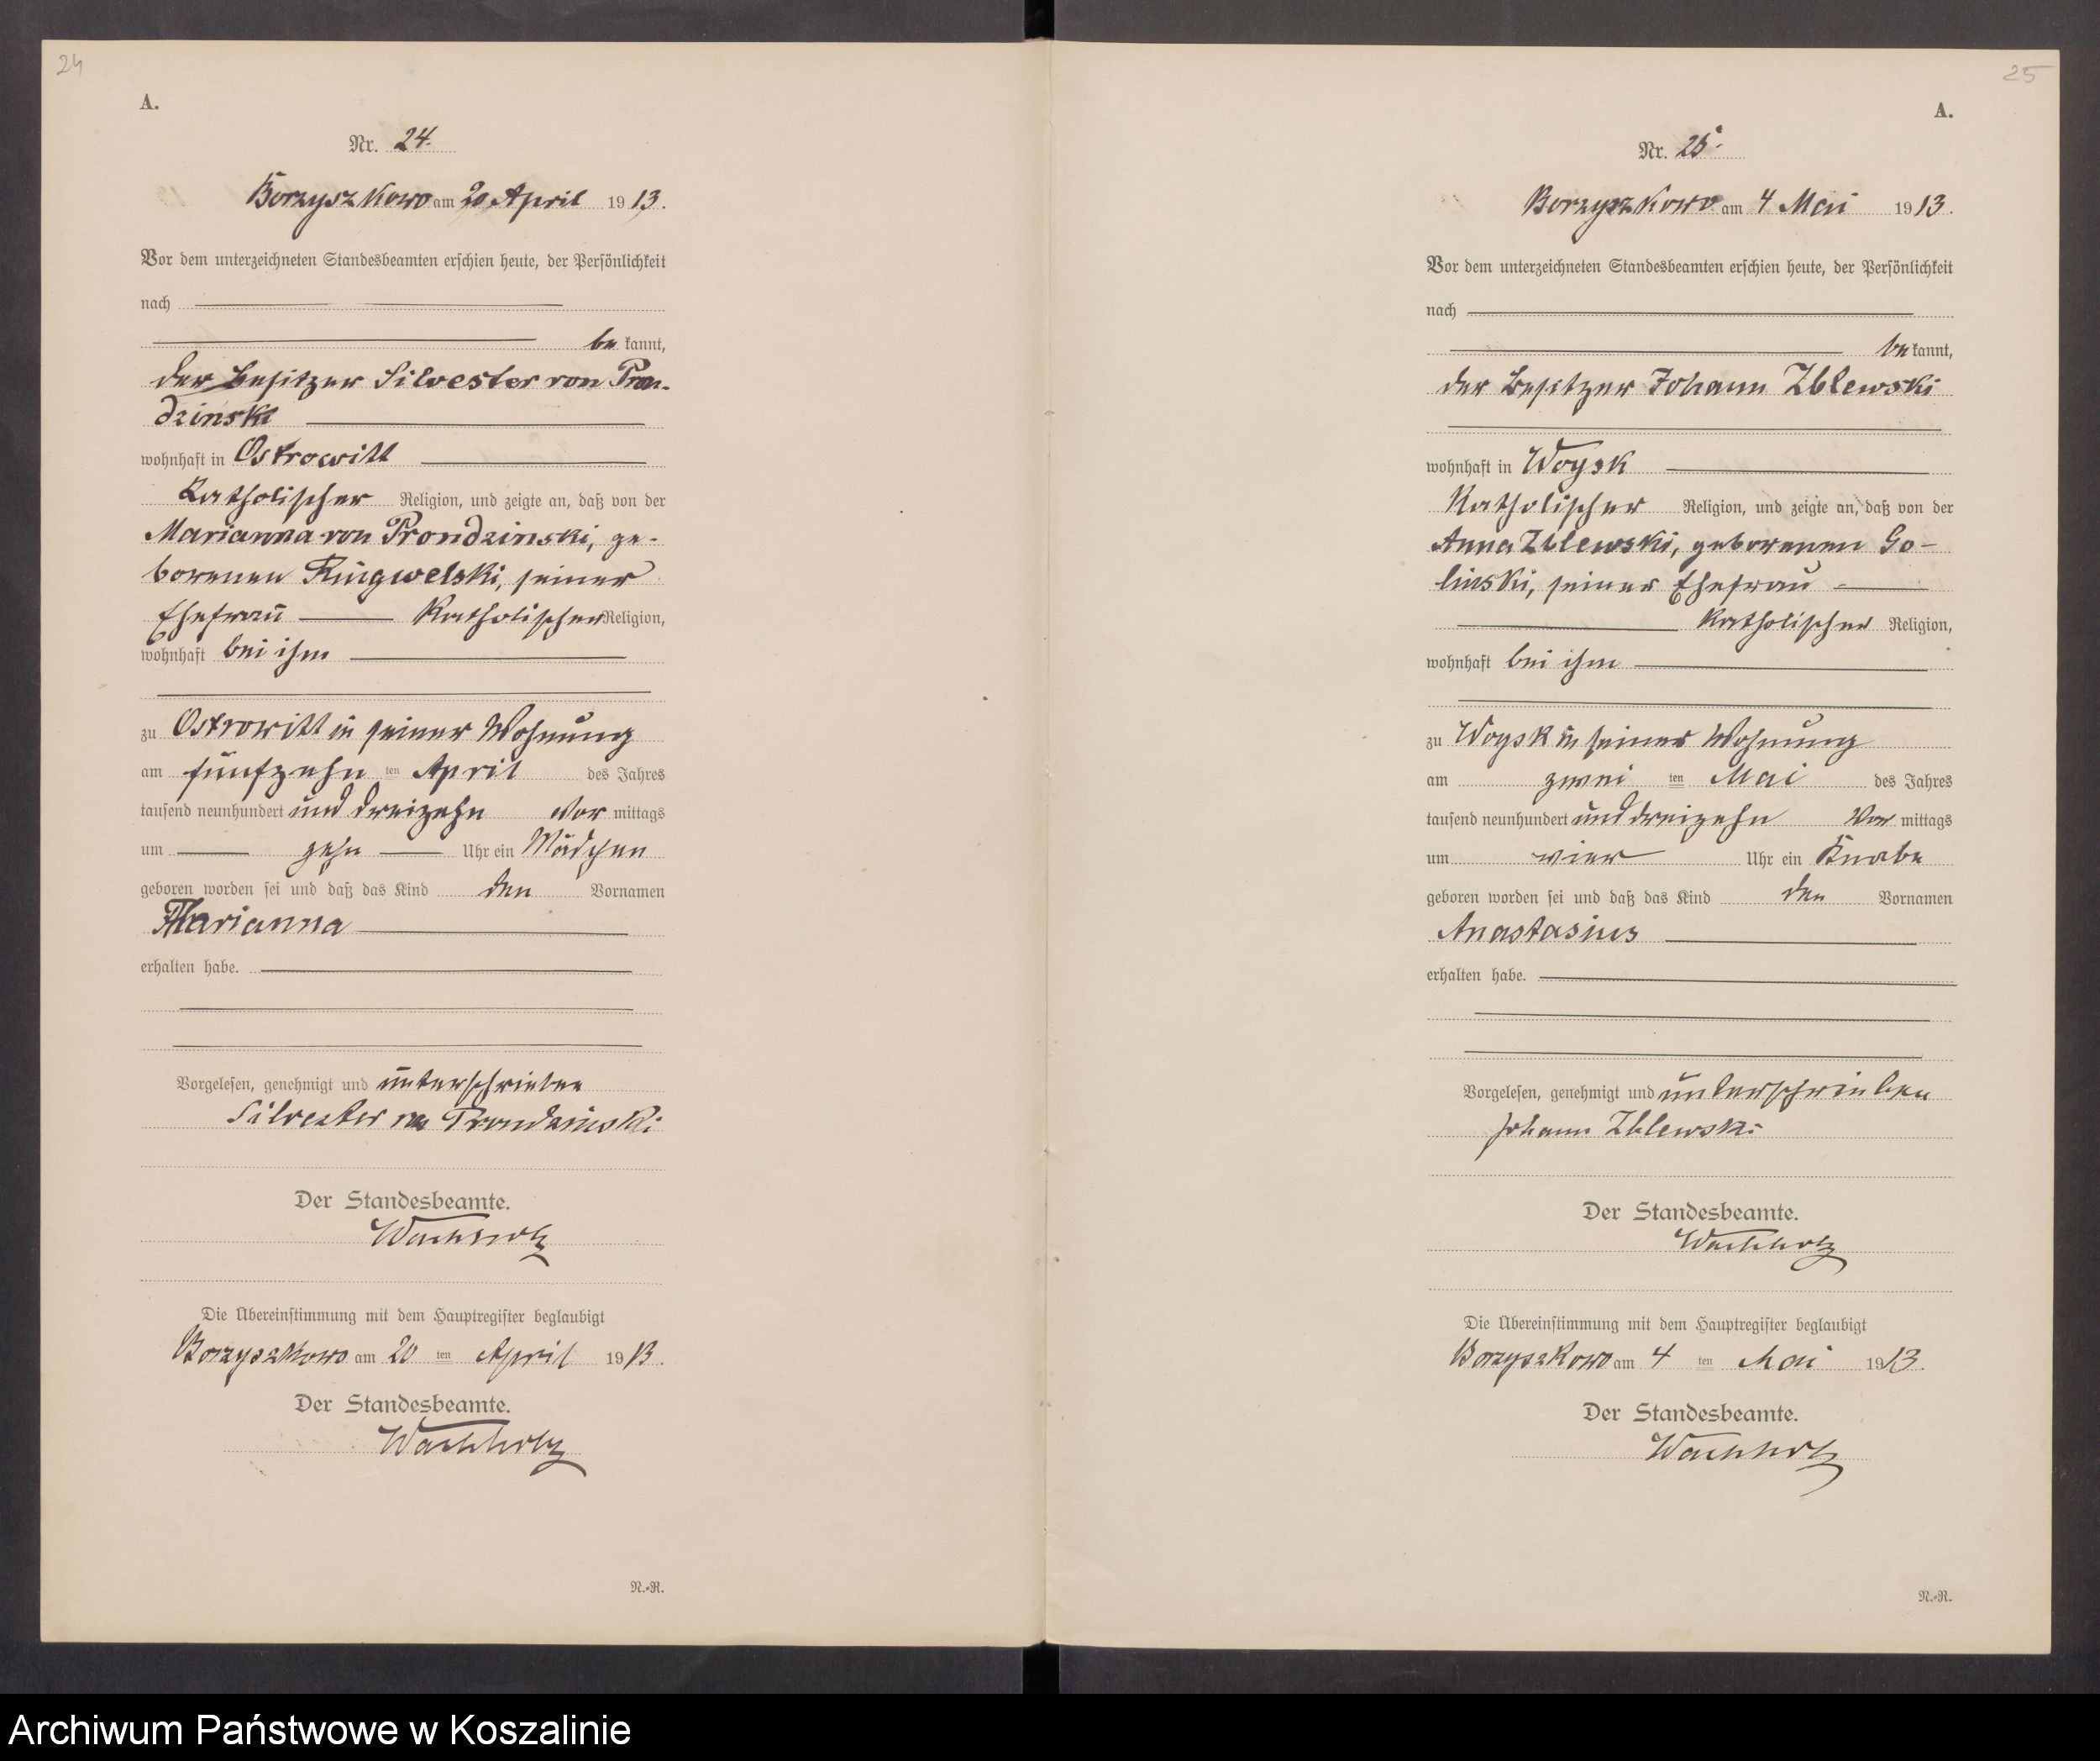 24
A.
Nr. 24.
Borzyszkowo am 20 April 1913.
Vor dem unterzeichneten Standesbeamten erschien heute, der Persönlichkeit
nach
be kannt,
der Besitzer Silvester von Pron-
dzinski
wohnhaft in Ostrowitt
Katholischer Religion, und zeigte an, daß von der
Marianna von Prondzinski, ge-
borenen Ringwelski, seiner
Ehefrau Katholischer Religion,
wohnhaft bei ihm
zu Ostrowitt in seiner Wohnung
am fünfzehn ten April des Jahres
tausend neunhundert und dreizehn Vor mittags
um zehn Uhr ein Mädchen
geboren worden sei und daß das Kind den Vornamen
Marianna
erhalten habe.
Vorgelesen, genehmigt und unterschrieben
Silvester von Prondzinski
Der Standesbeamte.
Wachholz
Die Übereinstimmung mit dem Hauptregister beglaubigt
Borzyszkowo am 20 ten April 1913.
Der Standesbeamte.
Wachholz
N.-R.
25
A.
Nr. 25.
Borzyszkowo am 4 Mai 1913.
Vor dem unterzeichneten Standesbeamten erschien heute, der Persönlichkeit
nach
be kannt,
der Besitzer Johann Zblewski
wohnhaft in Woysk
Katholischer Religion, und zeigte an, daß von der
Anna Zblewski, geborenen Go-
linski, seiner Ehefrau
Katholischer Religion,
wohnhaft bei ihm
zu Woysk in seiner Wohnung
am zwei ten Mai des Jahres
tausend neunhundert und dreizehn Vor mittags
um vier Uhr ein Knabe
geboren worden sei und daß das Kind den Vornamen
Anastasius
erhalten habe.
Vorgelesen, genehmigt und unterschrieben
Johann Zblewski
Der Standesbeamte.
Wachholz
Die Übereinstimmung mit dem Hauptregister beglaubigt
Borzyszkowo am 4 ten Mai 1913.
Der Standesbeamte.
Wachholz
N.-R.
Archiwum Państwowe w Koszalinie